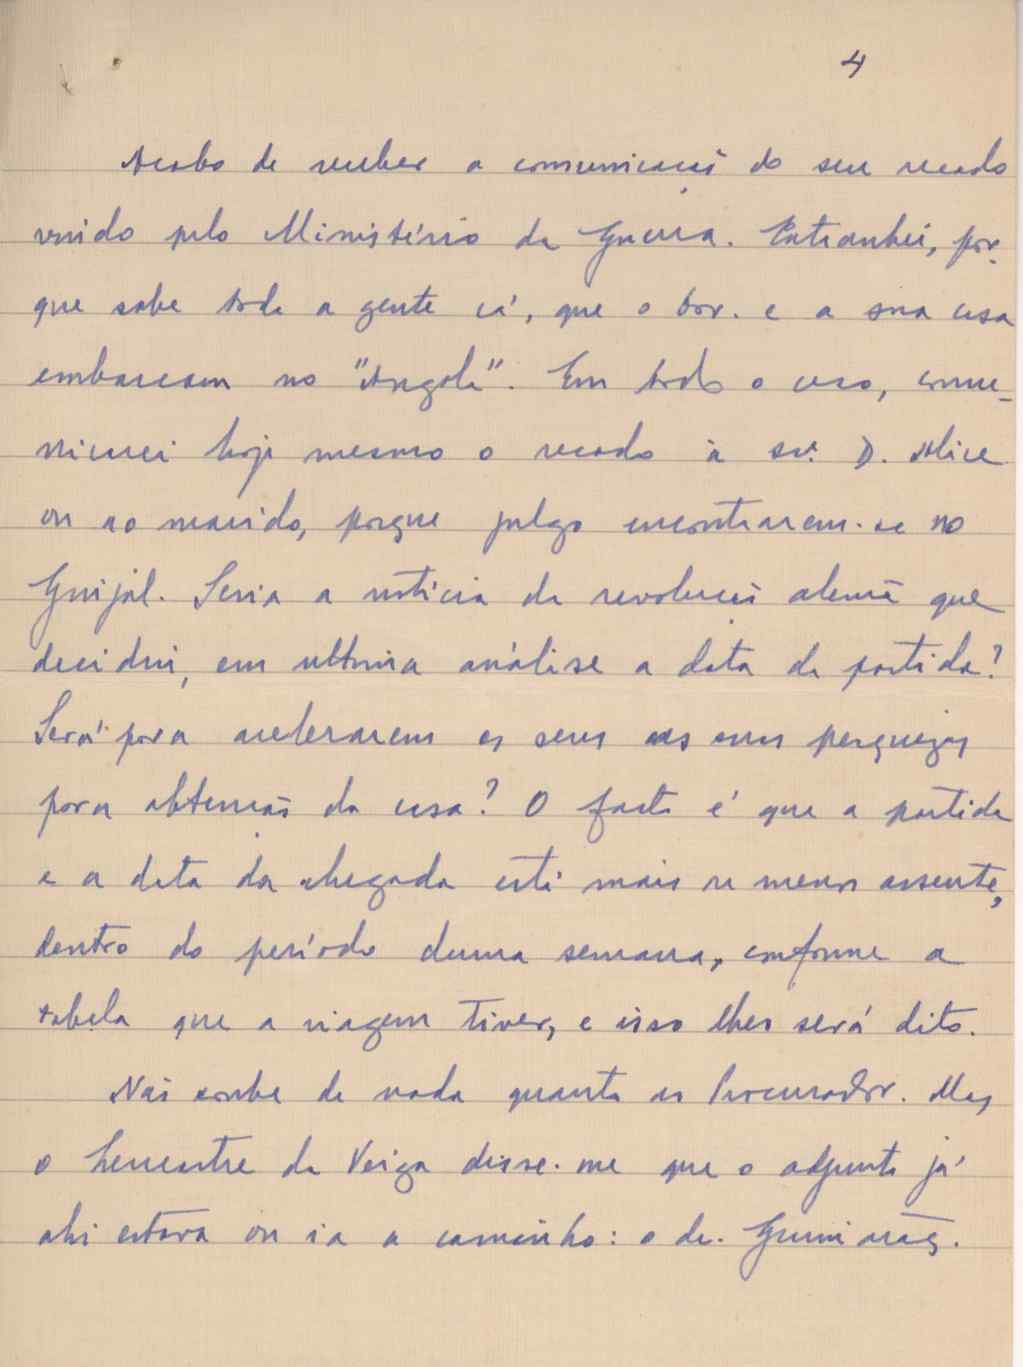 4
Acabo de receber a comunicação do seu recado
vindo pelo Ministério da Guerra. Estranhei, por-
que sabe toda a gente cá, que o Dor. e a sua casa
embarcam no "Angola". Em todo o caso, comu-
nicarei hoje mesmo o recado à sr.ª D. Alice
ou ao marido, porque julgo encontrarem-se no
Guijal. Seria a notícia da revolução alemã que
decidiu, em ultima análise a data da partida?
Será para acelerarem os seus as suas pesquizas
para obtenção da casa? O facto é que a partida
e a data da chegada está mais ou menos assente,
dentro do período duma semana, conforme a
tabela que a viagem tiver, e isso lhes será dito.
Não soube de nada quanto ao Procurador. Mas
o da Veiga disse-me que o adjunto já
ahi estava ou ia a caminho: o dr. Guimarães.